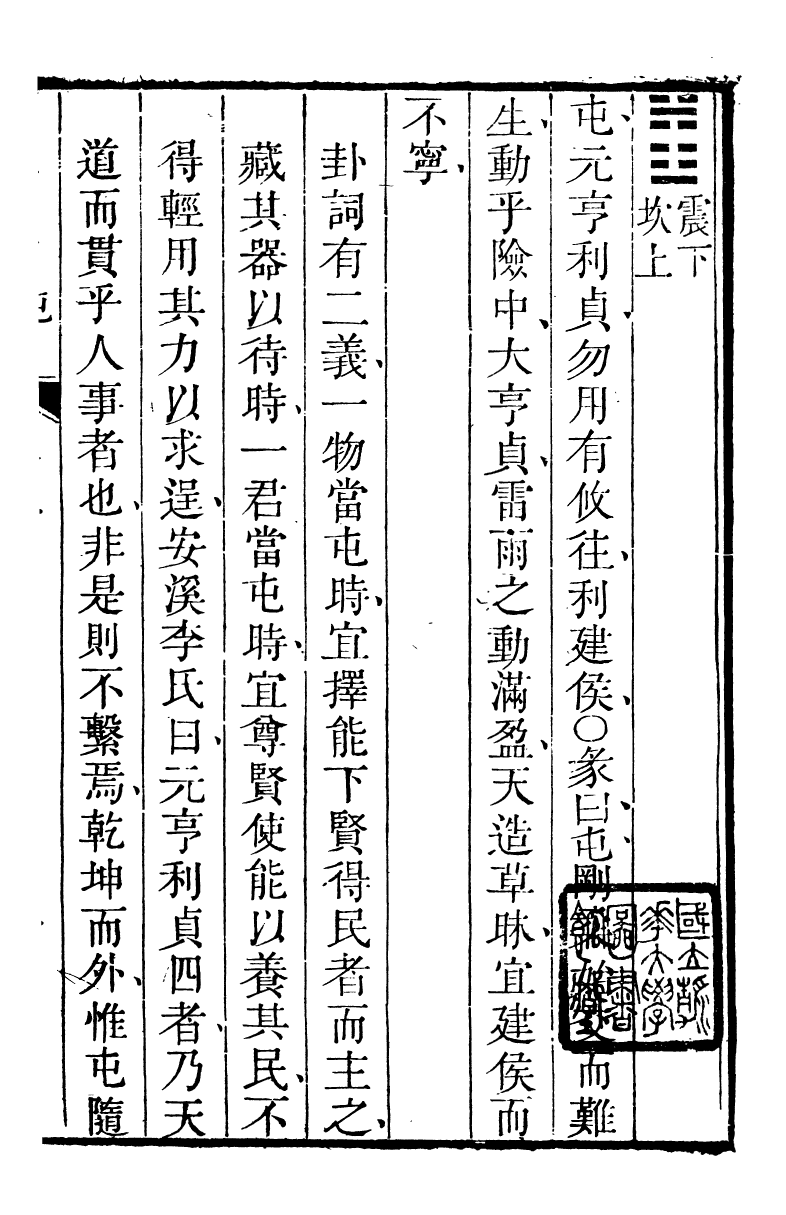 ䷂震下
坎上
屯、元亨利貞、勿用有攸往、利建侯、○彖曰、屯、剛交而難
生、動乎險中、大亨貞、雷雨之動滿盈、天造草昧、宜建侯而
不寧、
卦詞有二義、一物當屯時、宜擇能下賢得民者而主之、
藏其器以待時、一君當屯時、宜尊賢使能以養其民、不
得輕用其力以求逞、安溪李氏曰、元亨利貞四者、乃天
道而貫乎人事者也、非是則不繫焉、乾坤而外、惟屯隨
屯
國立清華大學圖書館藏